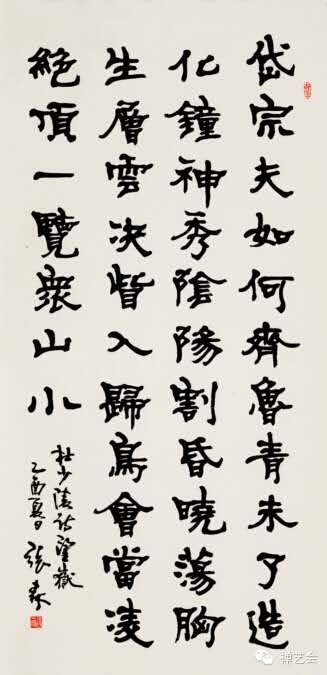 岱宗夫如何齊魯青未了造
化鐘神秀陰陽割昏曉蕩胸
生層雲决眥入歸鳥會當凌
絶頂一覽衆山小
杜少陵詩望嶽
乙酉夏日 張森
禅艺会